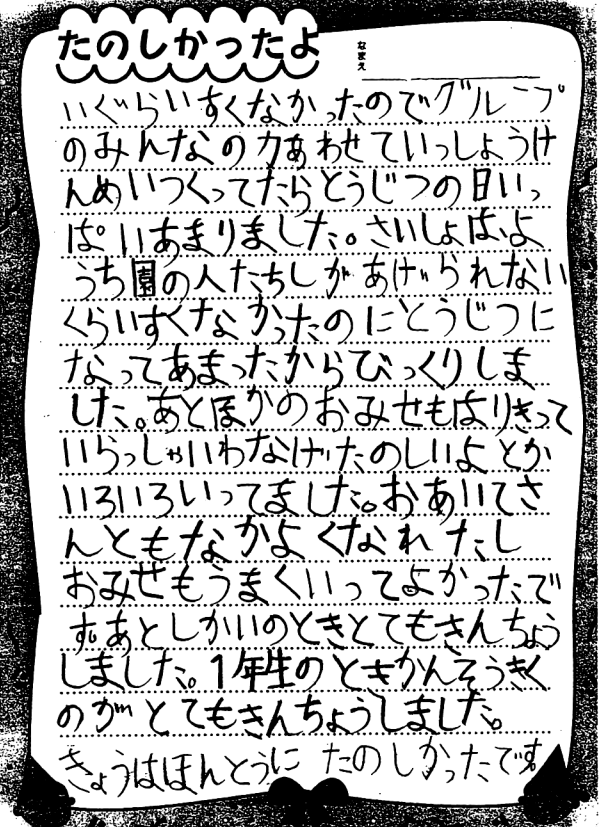 たのしかったよ
なまえ
いぐらいすくなかったのでグループ
のみんなの力あわせていっしょうけ
んめいつくってたらとうじつの日いっ
ぱいあまりました。さいしょは、よ
うち園の人たちしかあげられない
くらいすくなかったのにとうじつに
なってあまったからびっくりしま
した。あとほかのおみせもはりきって
いらっしゃいわなげたのしいよとか
いろいろいってました。おあいてさ
んともなかよくなれたし
おみせもうまくいってよかったで
す。あとしかいのときとてもきんちょう
しました。1年生のときかんそうきく
のがとてもきんちょうしました。
きょうはほんとうにたのしかったです。